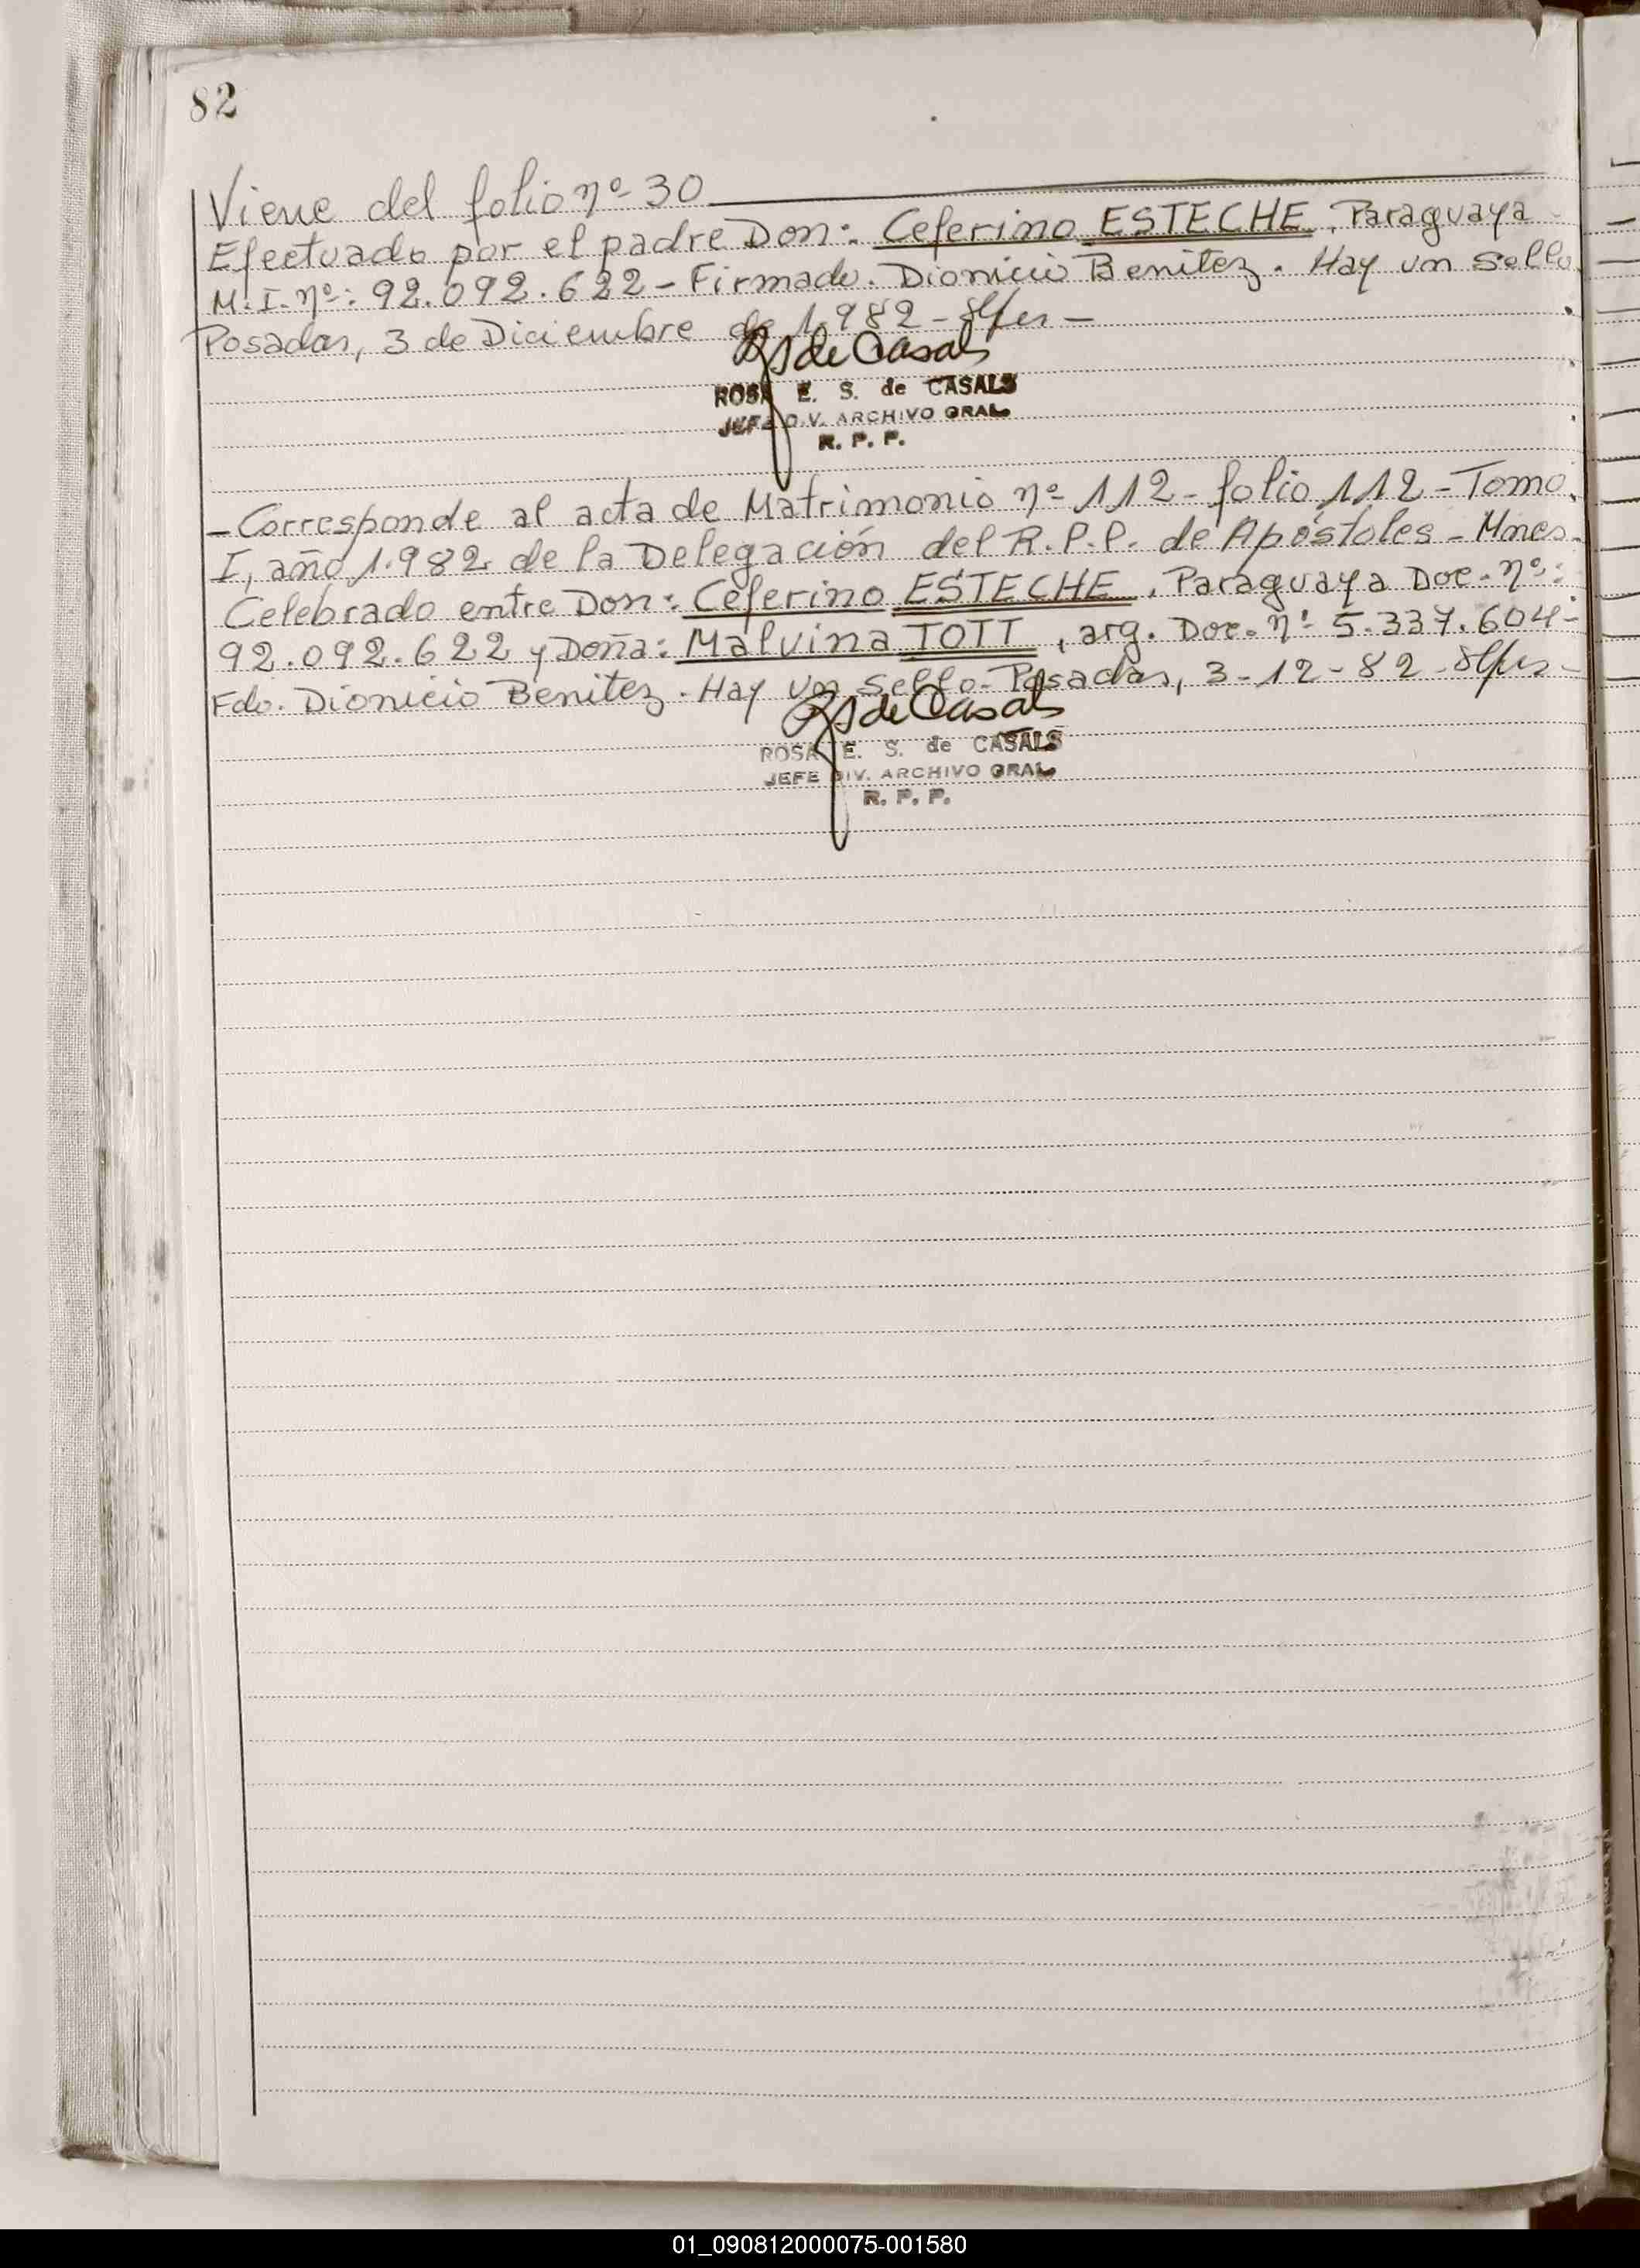 82
Viene del folio nº 30
Efectuado por el padre Don: Ceferino ESTECHE, Paraguaya
M. I. nº: 92.092.622 - Firmado. Dionicio Benitez. Hay un sello
Posadas, 3 de Diciembre de 1.982 -
RS de Casals
ROSA E. S. de CASALS
JEFE DIV. ARCHIVO GRAL.
R. P. P.
- Corresponde al acta de Matrimonio nº 112 - folio 112 - Tomo
I, año 1.982 de la Delegación del R.P.P. de Apóstoles - Mnes.
Celebrado entre Don: Ceferino ESTECHE, Paraguaya Doc. nº:
92.092.622 y Doña: Malvina TOTT, arg. Doc. nº 5.337.604 -
Fdo. Dionicio Benitez. Hay un sello - Posadas, 3-12-82 -
RS de Casals
ROSA E. S. de CASALS
JEFE DIV. ARCHIVO GRAL.
R. P. P.
01_090812000075-001580